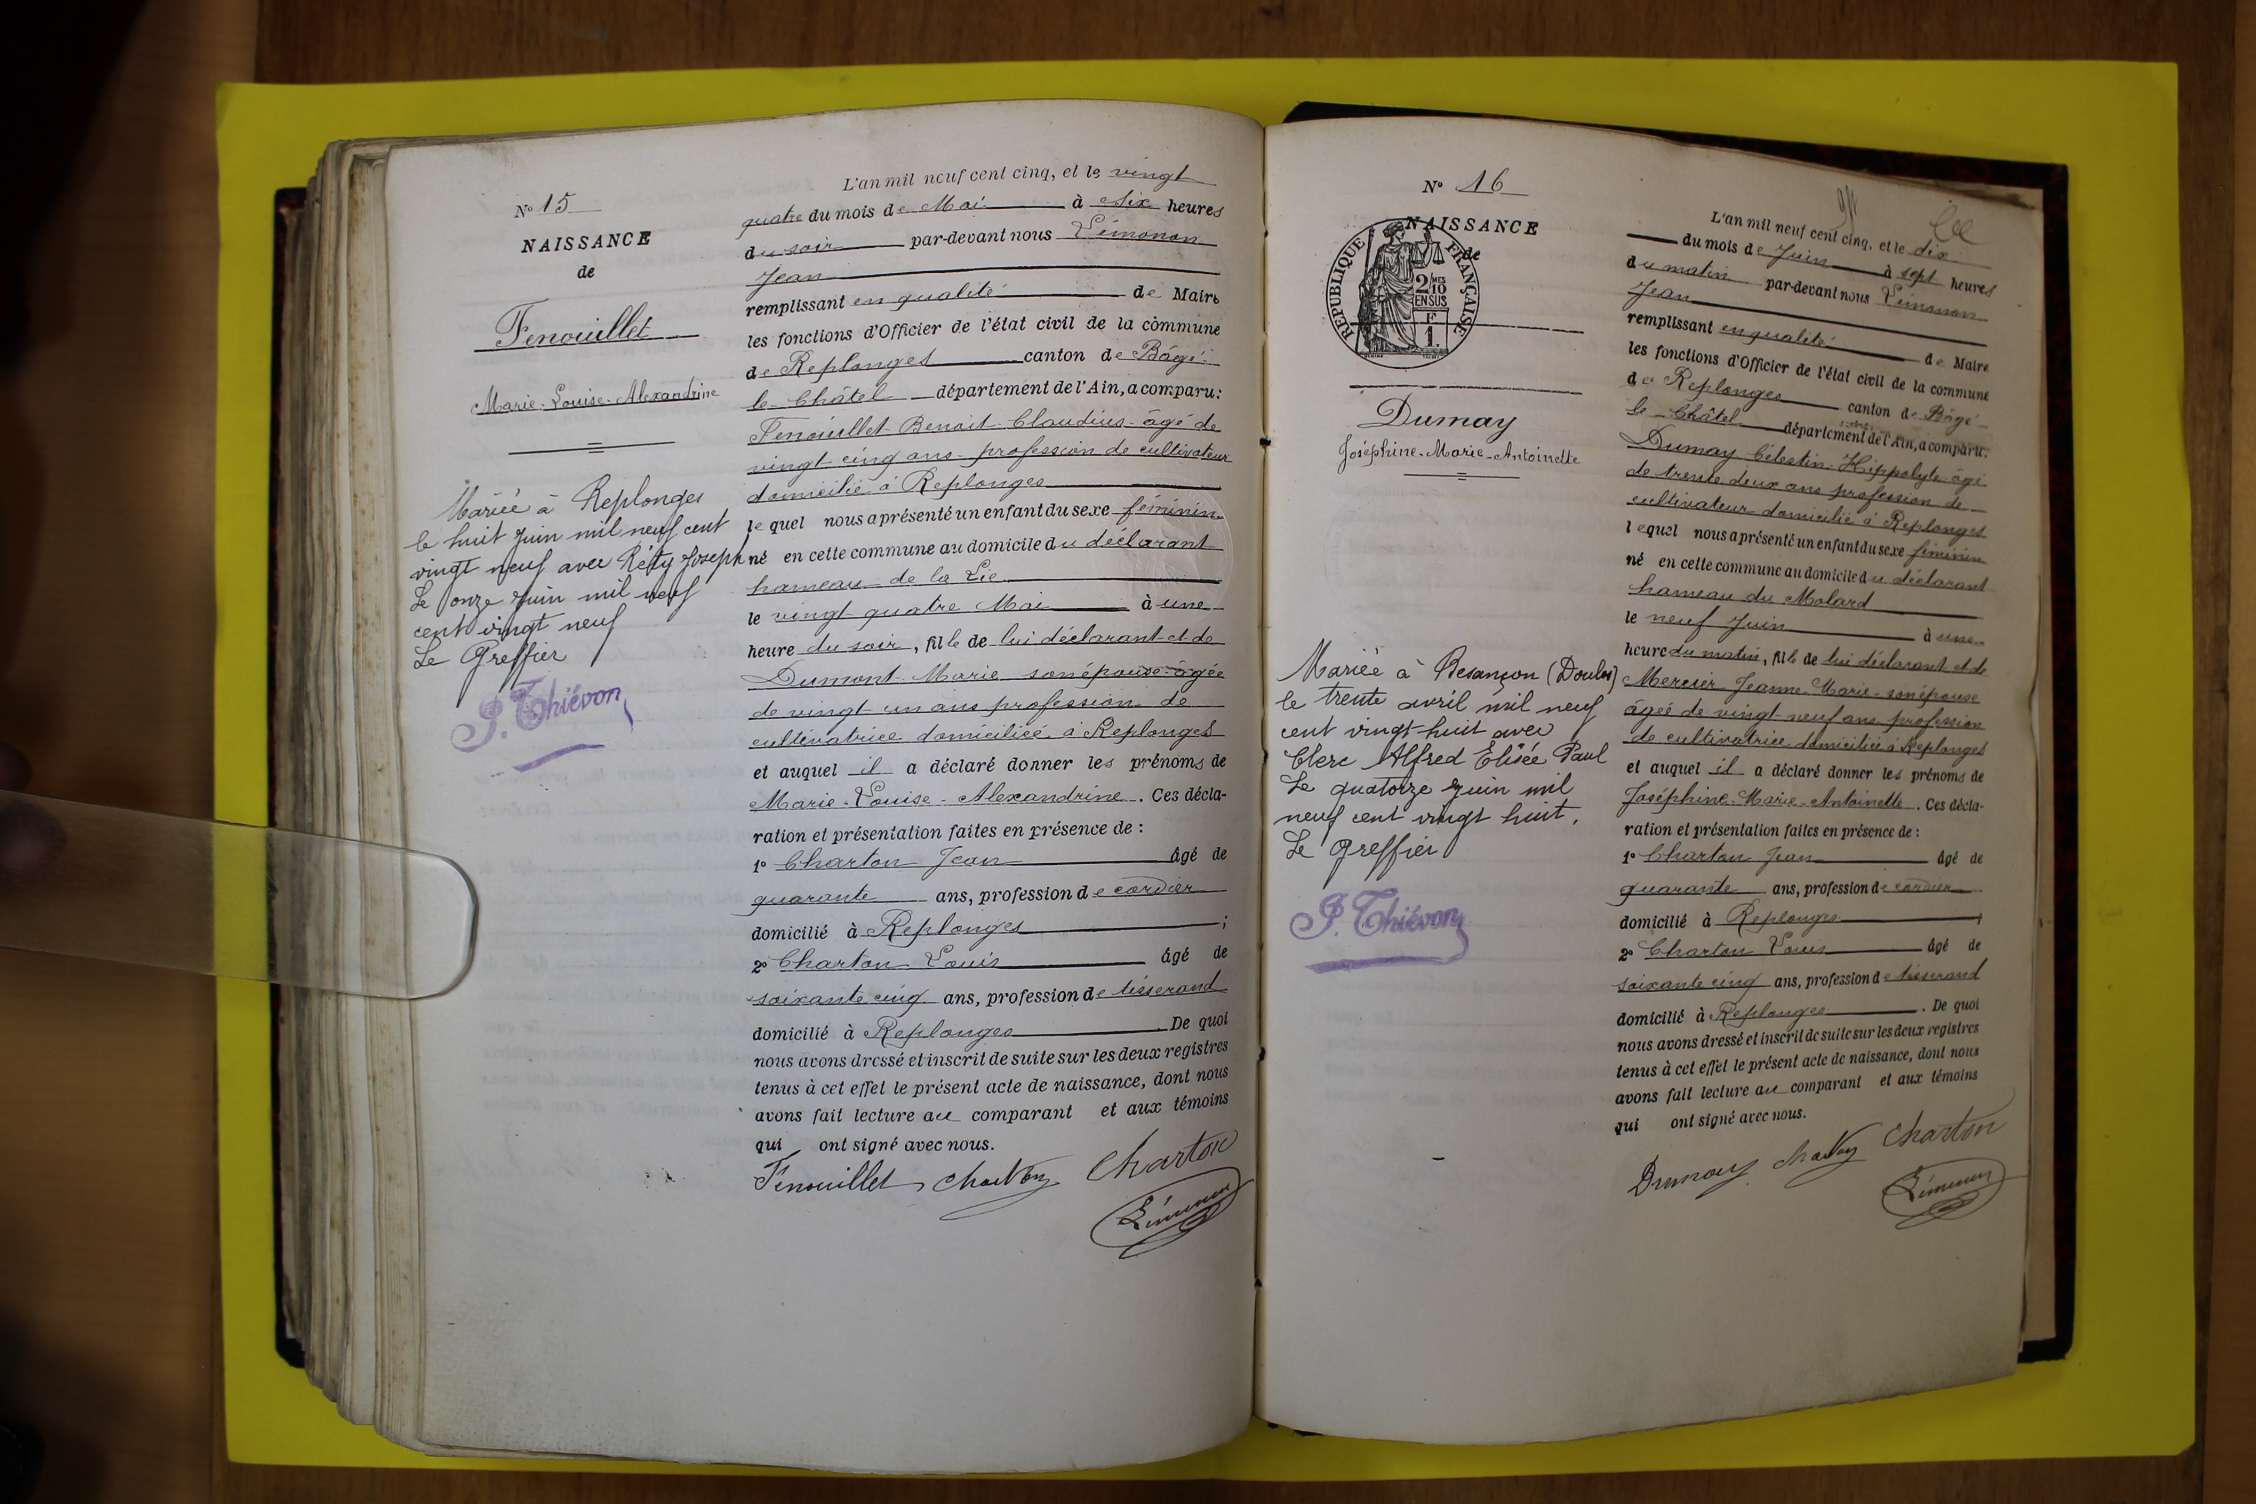 N° 15
NAISSANCE
de
Fenouillet
Marie-Louise-Alexandrine
Mariée à Replonges
le huit juin mil neuf cent
vingt neuf avec Réty Joseph
Le onze juin mil neuf
cent vingt neuf
Le Greffier
P. Thiévon
L'an mil neuf cent cinq, et le vingt
quatre du mois de Mai à six heures
du soir par-devant nous Lémonon
Jean
remplissant en qualité de Maire
les fonctions d'Officier de l'état civil de la commune
de Replonges canton de Bâgé
le Châtel département de l'Ain, a comparu:
Fenouillet Benoit Claudius âgé de
vingt cinq ans profession de cultivateur
domicilié à Replonges
lequel nous a présenté un enfant du sexe féminin
né en cette commune au domicile du déclarant
hameau de la Lie
le vingt quatre Mai à une
heure du soir, fille de lui déclarant et de
Dumont Marie son épouse âgée
de vingt un ans profession de
cultivatrice domiciliée à Replonges
et auquel il a déclaré donner les prénoms de
Marie-Louise-Alexandrine. Ces décla-
ration et présentation faites en présence de :
1° Charton Jean âgé de
quarante ans, profession de cordier
domicilié à Replonges ;
2° Charton Louis âgé de
soixante cinq ans, profession de tisserand
domicilié à Replonges. De quoi
nous avons dressé et inscrit de suite sur les deux registres
tenus à cet effet le présent acte de naissance, dont nous
avons fait lecture au comparant et aux témoins
qui ont signé avec nous.
Fenouillet Charton Charton
Lémonon
N° 16
NAISSANCE
de
RÉPUBLIQUE FRANÇAISE
2/10 MES
EN SUS
F
1.
Dumay
Joséphine-Marie-Antoinette
Mariée à Besançon (Doubs)
le trente avril mil neuf
cent vingt-huit avec
Clerc Alfred Elisée Paul
Le quatorze juin mil
neuf cent vingt huit.
Le Greffier
P. Thiévon
L'an mil neuf cent cinq, et le dix
du mois de Juin à sept heures
du matin par-devant nous Lémonon
Jean
remplissant en qualité de Maire
les fonctions d'Officier de l'état civil de la commune
de Replonges canton de Bâgé
le Châtel département de l'Ain, a comparu:
Dumay Célestin Hippolyte âgé
de trente deux ans profession de
cultivateur domicilié à Replonges
lequel nous a présenté un enfant du sexe féminin
né en cette commune au domicile du déclarant
hameau du Molard
le neuf Juin à une
heure du matin, fille de lui déclarant et de
Mercier Jeanne Marie son épouse
âgée de vingt neuf ans profession
de cultivatrice domiciliée à Replonges
et auquel il a déclaré donner les prénoms de
Joséphine-Marie-Antoinette. Ces décla-
ration et présentation faites en présence de :
1° Charton Jean âgé de
quarante ans, profession de cordier
domicilié à Replonges ;
2° Charton Louis âgé de
soixante cinq ans, profession de tisserand
domicilié à Replonges. De quoi
nous avons dressé et inscrit de suite sur les deux registres
tenus à cet effet le présent acte de naissance, dont nous
avons fait lecture au comparant et aux témoins
qui ont signé avec nous.
Dumay Charton Charton
Lémonon